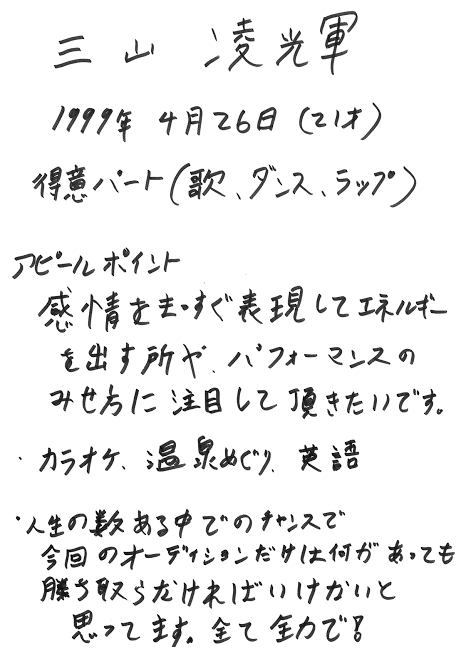 三山 凌光軍
1999年 4月26日 (21才)
得意パート(歌、ダンス、ラップ)
アピールポイント
感情をまっすぐ表現してエネルギー
を出す所や、パフォーマンスの
みせ方に注目して頂きたいです。
・カラオケ、温泉めぐり、英語
・人生の数ある中でのチャンスで
今回のオーディションだけは何があっても
勝ち取らなければいけないと
思ってます。全て全力で!